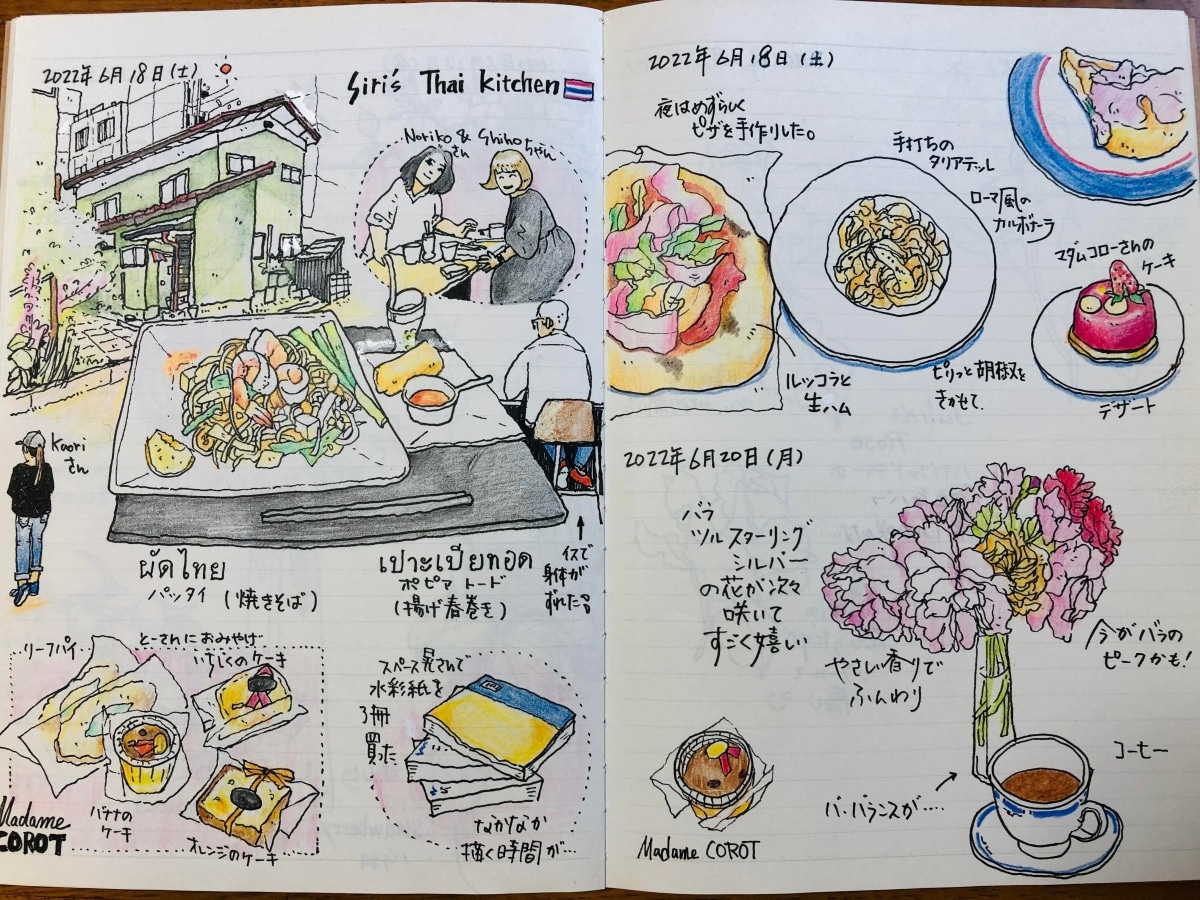 2022年6月18日(土)
Siri's Thai kitchen
Noriko & Shihoちゃん
さん
Kaori
さん
ผัดไทย
パッタイ (焼きそば)
เปาะเปี๊ยทอด
ポピア トード
(揚げ春巻き)
イスで
身体が
ずれた
とーさんにおみやげ
リーフパイ
いちじくのケーキ
バナナの
ケーキ
オレンジのケーキ
Madame
COROT
スペース晃さんで
水彩紙を
3冊
買った
なかなか
描く時間が…
2022年6月18日(土)
夜はめずらしく
ピザを手作りした。
手打ちの
タリアテッレ
ローマ風の
カルボナーラ
マダムコローさんの
ケーキ
ルッコラと
生ハム
ピリっと胡椒を
きかせて.
デザート
2022年6月20日(月)
バラ
ツルスターリング
シルバー
の花が次々
咲いて
すごく嬉しい
やさしい香りで
ふんわり
今がバラの
ピークかも!
コーヒー
バ・バランスが‥‥
Madame COROT